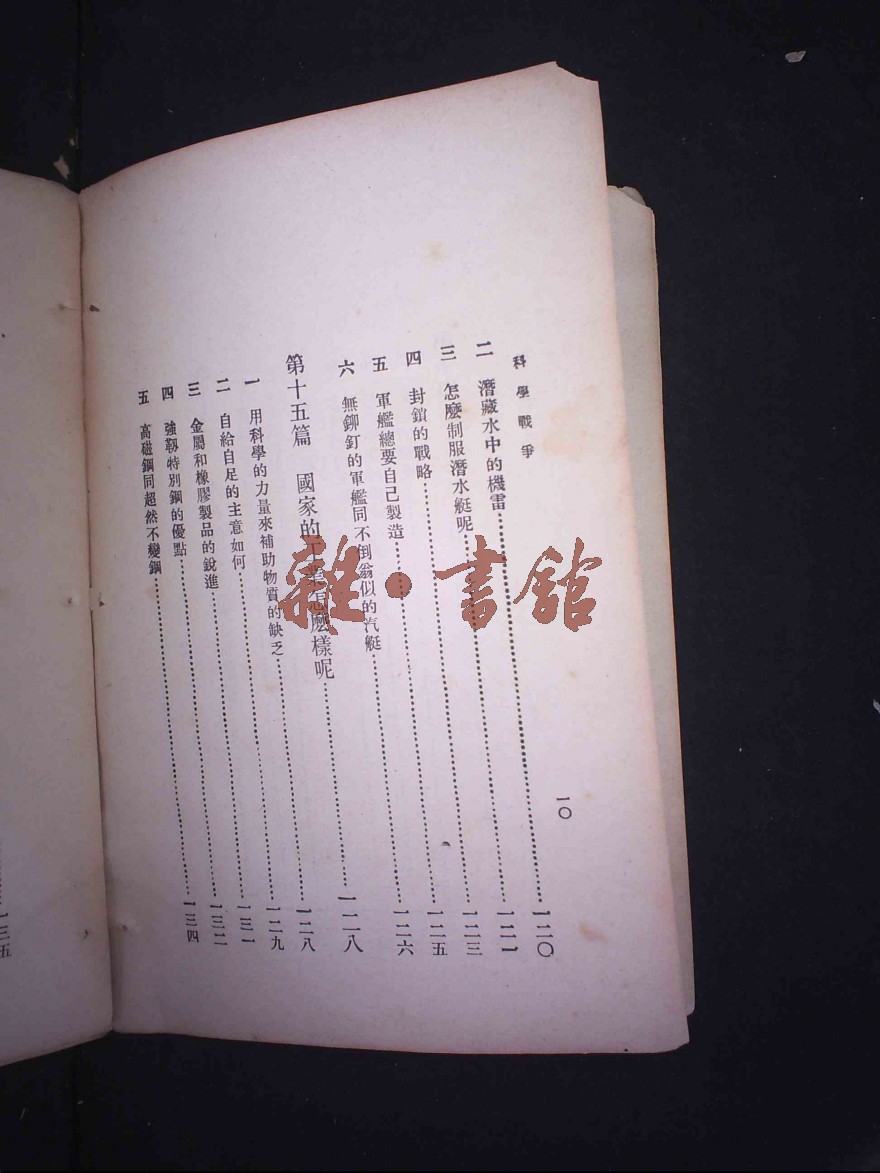 科學戰爭
二 潛藏水中的機雷……一二〇
三 怎麼制服潛水艇呢……一二一
四 封鎖的戰略……一二三
五 軍艦總要自己製造……一二五
六 無鉚釘的軍艦同不倒翁似的汽艇……一二六
第十五篇 國家的工業怎麼樣呢……一二八
一 用科學的力量來補助物質的缺乏……一二八
二 自給自足的主意如何……一二九
三 金屬和橡膠製品的銳進……一三一
四 強靱特別鋼的優點……一三二
五 高磁鋼同超然不變鋼……一三四
一〇
……一三五
雜·書館